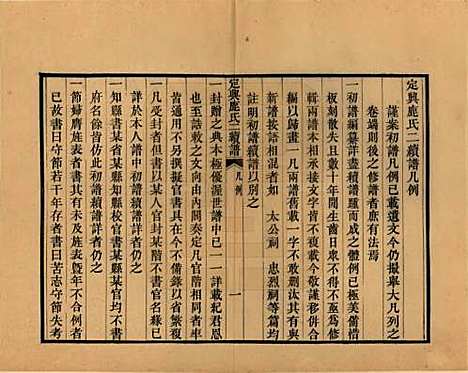 定興鹿氏二續譜凡例
謹案初譜凡例已載遺文今仍撮舉大凡列之
卷端則後之修譜者庶有法焉
一初譜編纂詳盡續譜踵而成之體例已具惟
板刻散失且數十年間生齒日衆不得不亟修
輯兩譜本可接續然不暇皆載今敬謹移併合
編以歸畫一凡兩譜舊載一字不敢刪汰而其
新譜按語相混者如 太公祠 忠烈祠等篇均
註明初譜續譜以別之
定興鹿氏二續譜 凡例 一
一封贈之典本極優渥世譜中已一一詳載紀君恩
也至誥敕之文向由內閣奏定凡官階同者率
皆通用不另撰擬官書具在今不備錄以省繁複
一凡受封者但書以某官封某階不書官名緣已
詳於本人譜中初譜續譜有書者仍之
一知縣書省某縣縣校官書某縣某官均不書
府名徐皆仿此初譜續譜詳者仍之
一節婦旌族表者其書有未及旌表暨年不合例者
已故書曰守節若干年存者書曰苦志守節失考